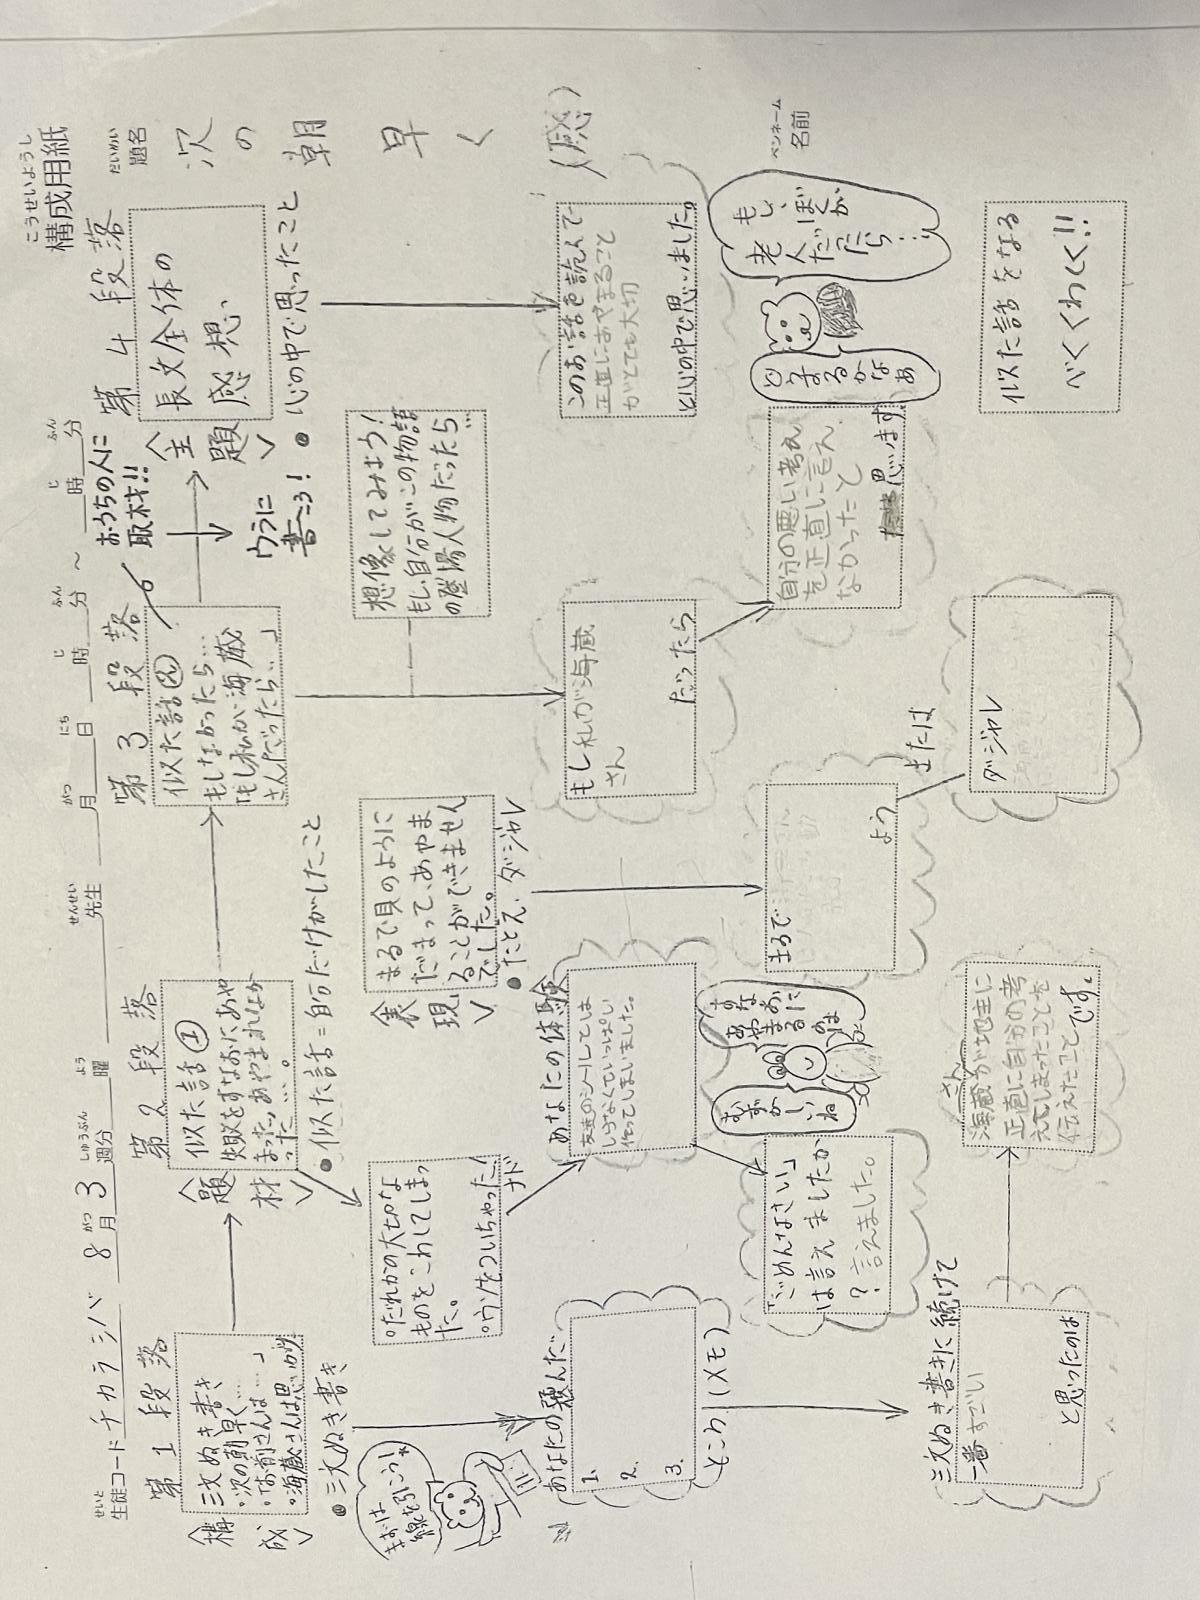 こうせいようし
構成用紙
せいと
生徒コード チカラシバ 8月3週分 曜 先生 月 日 時 分 〜 時 分
がつ しゅうぶん よう せんせい がつ にち じ ふん じ ふん
だいめい
題名
次の朝早く (感)
ペンネーム
名前
第1段落
〈構成〉
三文ぬき書き
・次の朝早く…
・「お前さんは…」
・海蔵さんは思い切り
●三文ぬき書き
まずは
線を引こう!
あなたの選んだ
1.
2.
3.
ところ(メモ)
三文ぬき書きに続けて
一番すごい
と思ったのは
海蔵さんが地主に
正直に自分の考
えてしまったことを
伝えたこと です。
第2段落
〈題材〉
似た話①
失敗をすなおにあや
まった、あやまれなか
った…。
●似た話=自分だけがしたこと
○だれかの大切な
ものをこわしてしまっ
た。
○ウソをついちゃった!
ナド
あなたの体験
友達のシートしてしは
しげなくていっぱい
作ってしまいました。
「ごめんなさい」
は言えましたか
? 言えました。
すなおに
あやまるのは
むずかしいね
〈表現〉
まるで貝のように
だまって、あやま
ることができません
でした。
●たとえ、ダジャレ
まるで
よう
または
ダジャレ
第3段落
似た話②
もしなかったら…
「もし私が海蔵
さんだったら…」
おうちの人に
取材!!
ウラに
書こう!
想像してみよう!
もし自分がこの物語
の登場人物だったら…
もし私が海蔵
さん
だったら
自分の悪い考え
を正直に言え
なかったと
思います
第4段落
〈主題〉
長文全体の
感想
●心の中で思ったこと
このお話を読んで
正直にあやまること
がとても大切
と心の中で思いました。
もし、ぼくが
老人だったら…
どうするかなあ
似た話をなる
べくくわしく!!